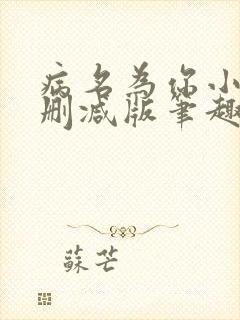 病名为你小
删减版笔趣
蘇芒